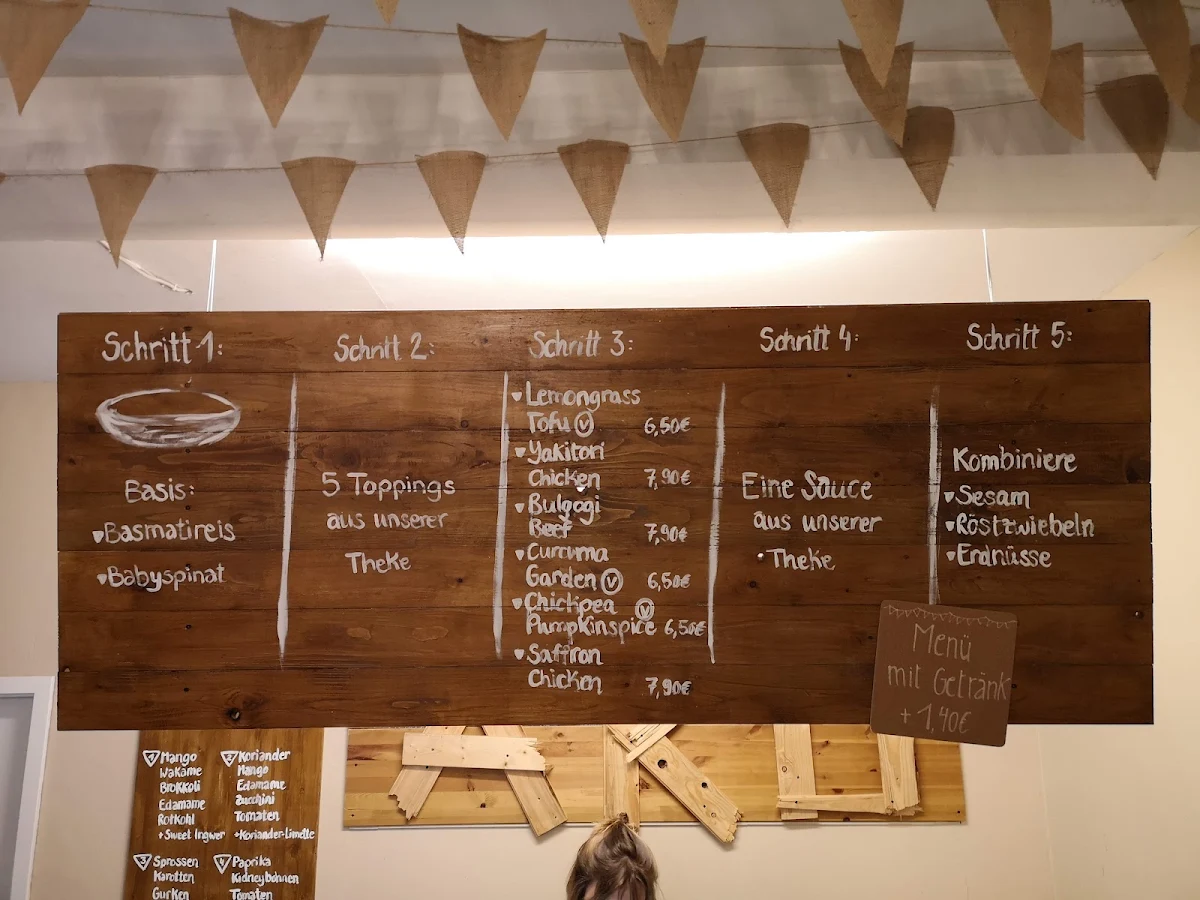 Schritt 1:
Basis:
Basmatireis
Babyspinat
Schritt 2:
5 Toppings
aus unserer
Theke
Schritt 3:
Lemongrass
Tofu Ⓥ 6,50€
Yakitori
Chicken 7,90€
Bulgogi
Beef 7,90€
Curcuma
Garden Ⓥ 6,50€
Chickpea Ⓥ
Pumpkinspice 6,50€
Saffron
Chicken 7,90€
Schritt 4:
Eine Sauce
aus unserer
Theke
Schritt 5:
Kombiniere
Sesam
Röstzwiebeln
Erdnüsse
Menü
mit Getränk
+ 1,40€
1 Mango
Wakame
Brokkoli
Edamame
Rotkohl
+Sweet Ingwer
2 Koriander
Mango
Edamame
Zucchini
Tomaten
+Koriander-Limette
3 Sprossen
Karotten
Gurken
4 Paprika
Kidneybohnen
Tomaten